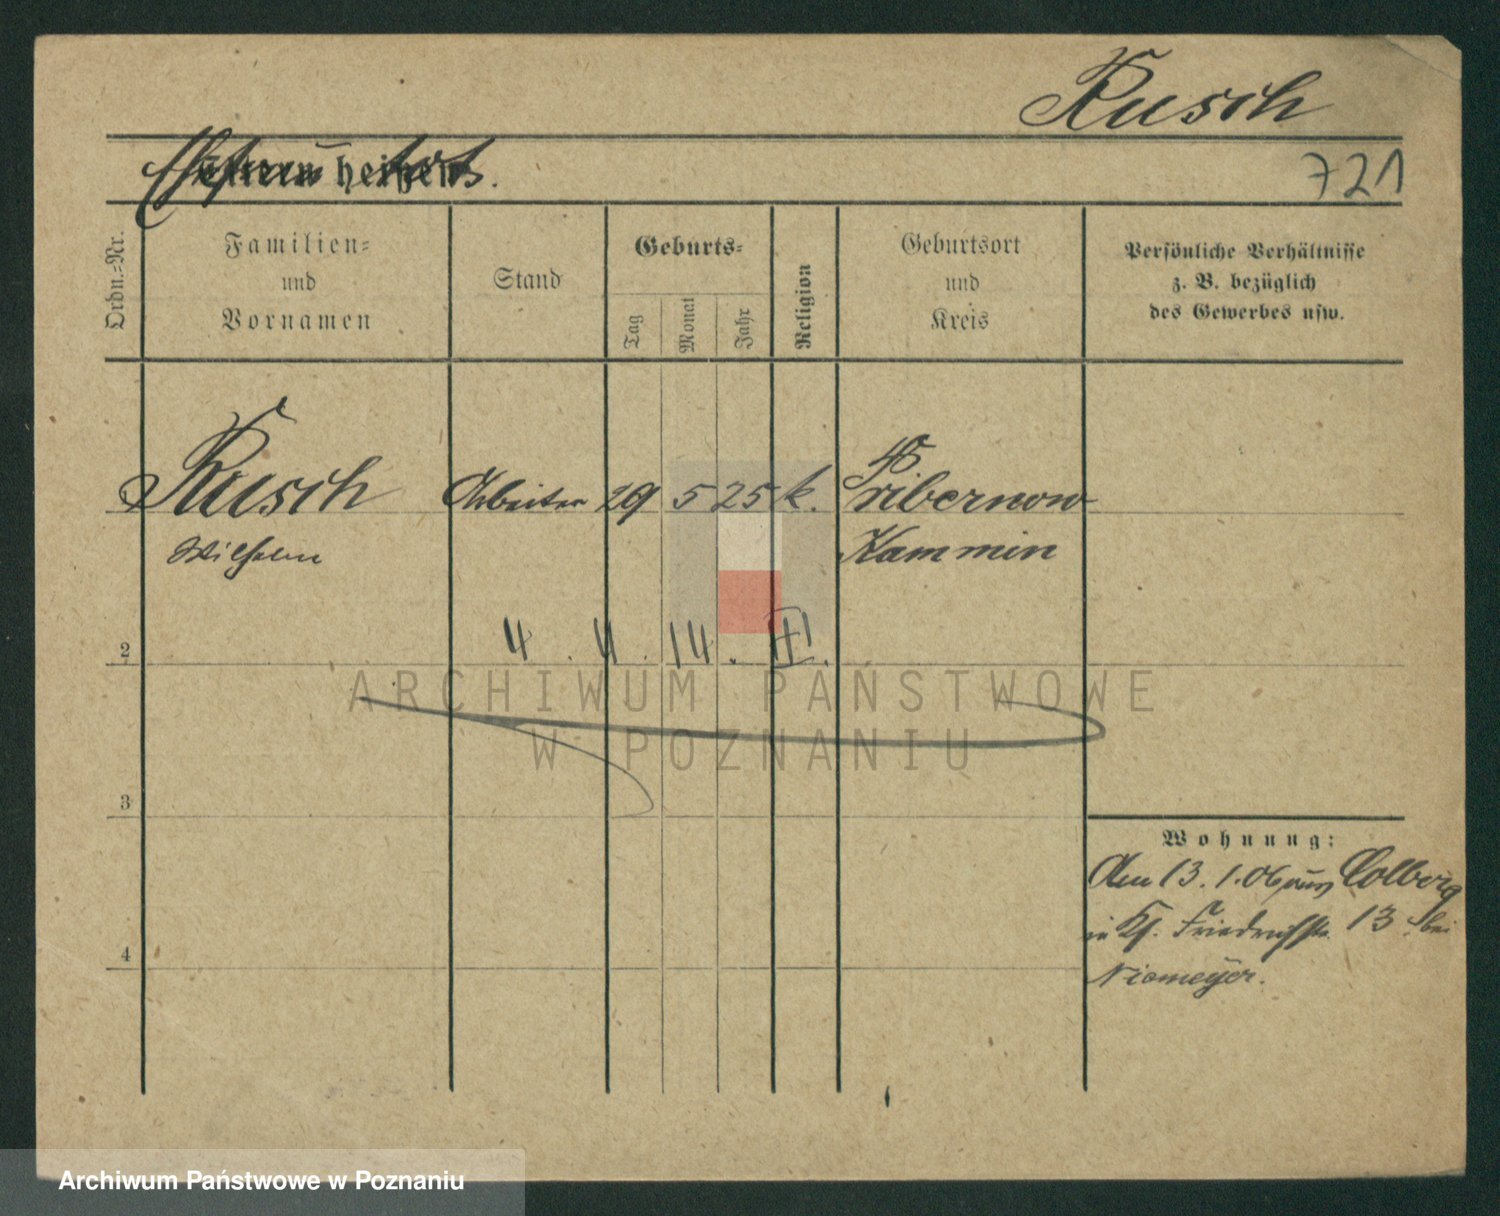 Rusch
721
heißen
Ordn.=Nr.
Familien=
und
Vornamen
Stand
Geburts=
Tag
Monat
Jahr
Religion
Geburtsort
und
Kreis
Persönliche Verhältnisse
z. B. bezüglich
des Gewerbes usw.
Rusch Arbeiter 29 5 25 k. Pribernow
Wilhelm Kammin
4. 4. 14.
2
ARCHIWUM PAŃSTWOWE
W POZNANIU
3
Wohnung:
Am 13. 1. 06 aus Colberg
in Friedrichstr. 13 bei
Niemeyer.
4
Archiwum Państwowe w Poznaniu